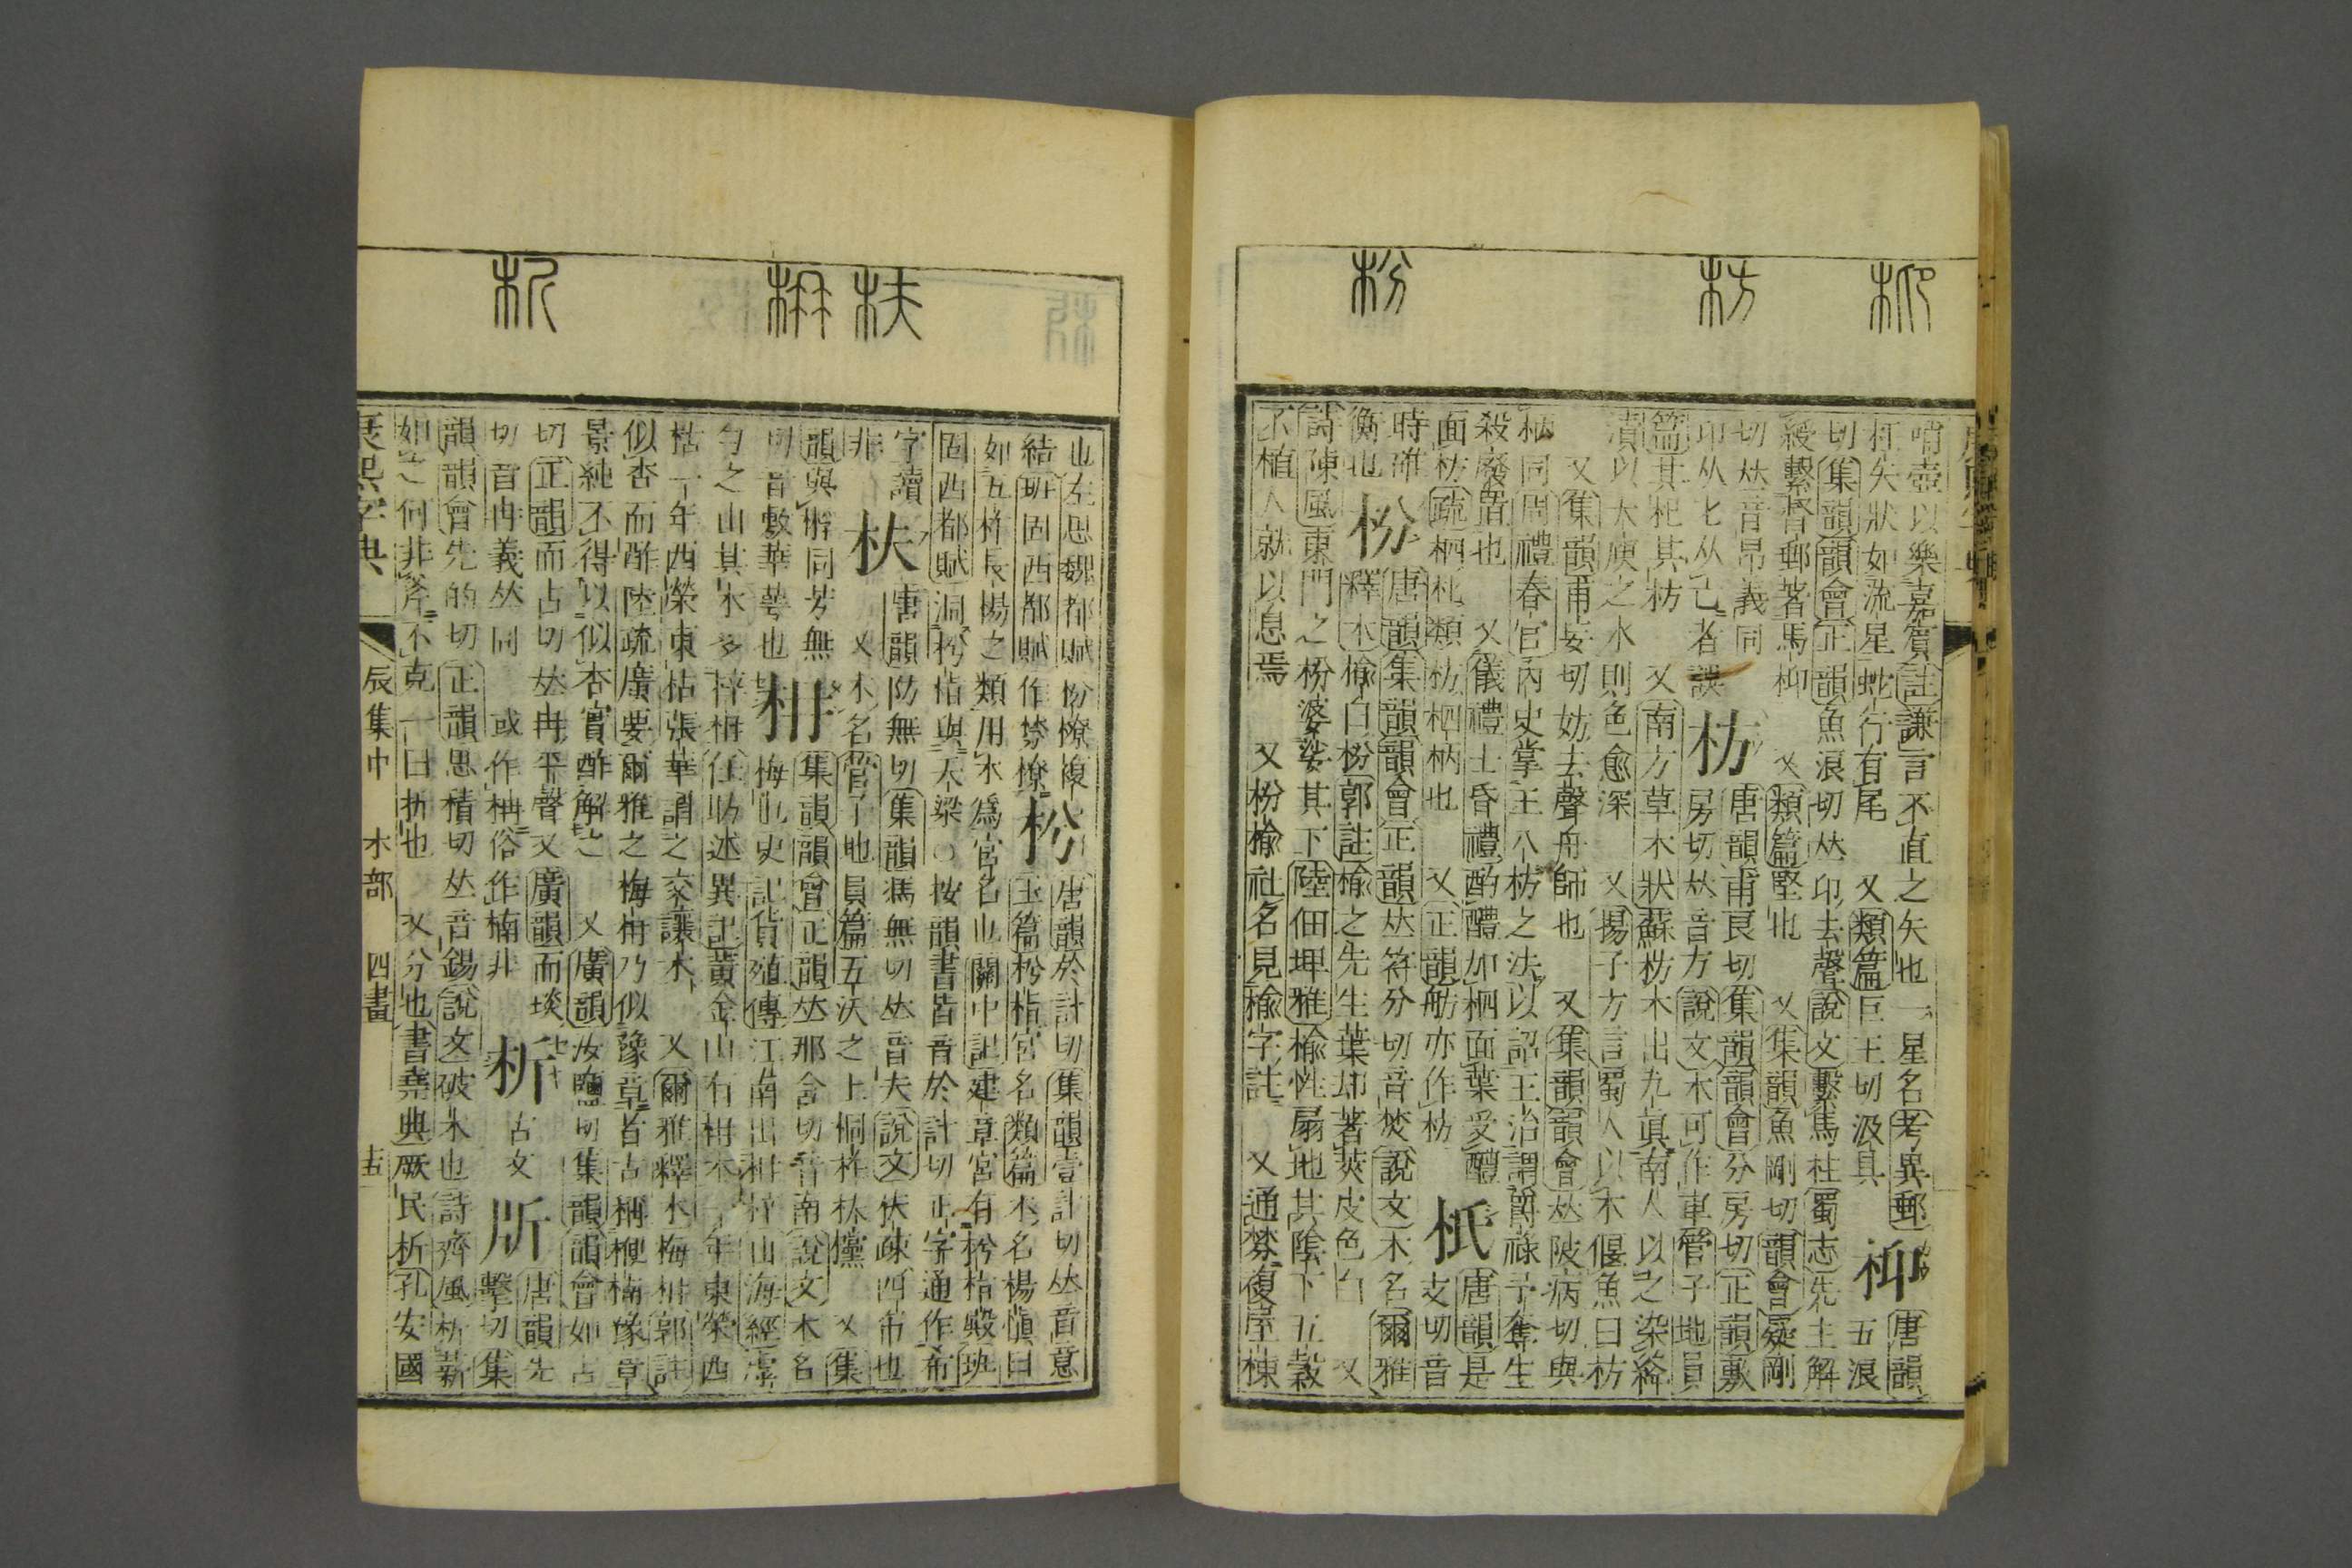 枊 枋 枌
哨壺以樂嘉賓註謙言不直之矢也一星名考異郵
枉矢狀如流星蛇行有尾 又類篇巨王切汲具 枊 唐韻五浪
切集韻韻會正韻魚浪切𠀤卬去聲說文繫馬柱蜀志先主解
綬繫督郵著馬枊 又類篇堅也 又集韻魚剛切韻會疑剛
切𠀤音昂義同
卬从匕从卪者誤 枋 唐韻甫良切集韻韻會分房切正韻敷房切𠀤音方說文木可作車管子地員
篇其杞其枋 又南方草木狀蘇枋木出九眞南人以之染絳
漬以大庾之水則色愈深 又揚子方言蜀人以木偃魚曰枋
又集韻甫妄切妨去聲舟師也 又集韻韻會𠀤陂病切與
柄同周禮春官內史掌王八枋之法以詔王治謂爵祿予奪生
殺廢置也 又儀禮士昏禮酌醴加柶面葉受醴
面枋疏柶枇類枋柶柄也 又正韻舫亦作枋 枛 唐韻是支切音
時碓
衡也 枌 唐韻集韻韻會正韻𠀤符分切音焚說文木名爾雅
釋木楡白枌郭註楡之先生葉却著莢皮色白 又
詩陳風東門之枌婆娑其下陸佃埤雅楡性扇地其陰下五穀
不植人就以息焉 又枌楡社名見楡字註 又通棼複屋棟
枎 枏 析
也左思魏都賦枌橑複
結班固西都賦作棼橑 枍 唐韻於計切集韻壹計切𠀤音意
玉篇枍栺宮名類篇木名楊愼曰
如五柞長楊之類用木爲宮名也關中記建章宮有枍栺殿班
固西都賦洞枍栺與天梁○按韻書皆音於計切正字通作希
字讀
非 枎 唐韻防無切集韻馮無切𠀤音夫說文枎疎四布也
又木名管子地員篇五沃之土桐柞枎櫄 又集
韻與柎同芳無
切音敷華萼也 枏 集韻韻會正韻𠀤那含切音南說文木名
梅也史記貨殖傳江南出枏梓山海經虖
勺之山其木多梓枏任昉述異記黃金山有枏木一年東榮西
枯一年西榮東枯張華謂之交讓木 又爾雅釋木梅枏郭註
似杏而酢陸疏廣要爾雅之梅枏乃似豫章者古稱楩楠豫章
景純不得以似杏實酢解之 又廣韻汝鹽切集韻韻會如占
切正韻而占切𠀤冉平聲又廣韻而琰
切音冉義𠀤同 或作柟俗作楠非 㭊 古文 𣂔 析 唐韻先擊切集
韻韻會先的切正韻思積切𠀤音錫說文破木也詩齊風析薪
如之何非斧不克一曰折也 又分也書堯典厥民析孔安國
康熙字典 辰集中 木部 四畫 十五